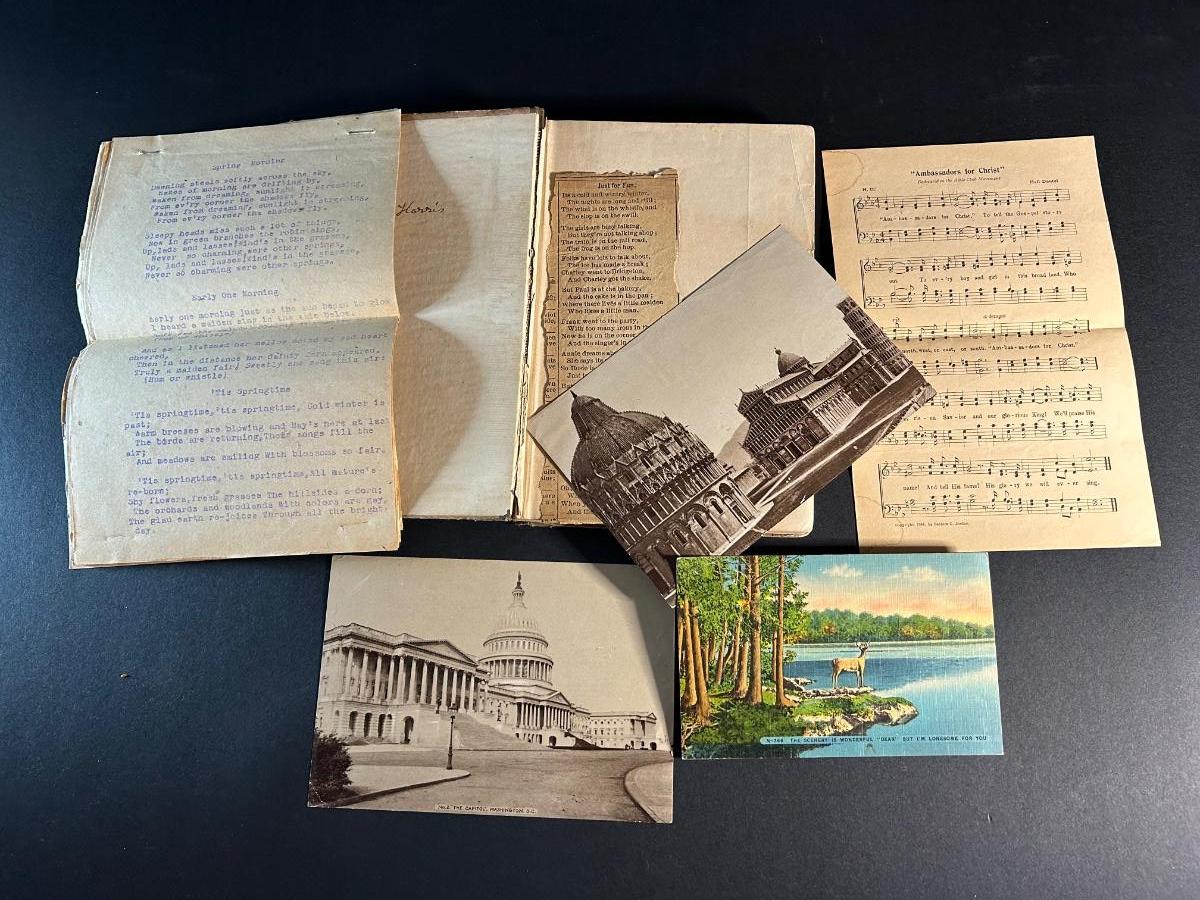 Spring Morning
Dawning steals softly across the sky,
Hazes of morning are drifting by,
Waken from dreaming, sunlight is streaming,
From ev'ry corner the shadows fly.
Waken from dreaming, sunlight is streaming,
From ev'ry corner the shadows fly.
Sleepy heads miss such a lot of things,
Now in green branches the robin sings,
Up, lads and lasses! Wind's in the grasses,
Never so charming were other springs,
Up, lads and lasses! Wind's in the grasses,
Never so charming were other springs.
Early One Morning
Early one morning just as the sun began to glow
I heard a maiden sing in the vale below.
And as I listened her mellow notes my sad heart
cheered,
Then in the distance her dainty form appeared.
Truly a maiden fair! Sweetly she sang this air:
(Hum or whistle)
'Tis Springtime
'Tis springtime,'tis springtime, Cold winter is
past;
Warm breezes are blowing and May's here at last
The birds are returning, Their songs fill the
air;
And meadows are smiling with blossoms so fair.
'Tis springtime,'tis springtime, All nature's
re-born;
Shy flowers, fresh grasses The hillsides a-dorn;
The orchards and woodlands With colors are gay,
The glad earth re-joices Through all the bright
day.
Harris
Just for Fun.
Its a cold and wintry winter,
The nights are long and still;
The wind is on the whistle, and
The slop is on the swill.
The girls are busy talking,
But they're not talking shop;
The train is on the rail road,
The frog is on the hop.
Folks have lots to talk about,
The ice has made a break;
Charley went to Bridgeton,
And Charley got the shake.
But Paul is at the bakery,
And the cake is in the pan;
Where there lives a little maiden
Who likes a little man.
Frank went to the party,
With too many irons in
Now he is on the corner,
And the single's in
Annie dreams
She says its
So there is
Just
But
"Ambassadors for Christ"
Dedicated to the Bible Club Movement
H. C.
"Am-bas-sa-dors for Christ," To tell the Gos-pel sto-ry
out. To ev-'ry boy and girl in this broad land. Who
north, west, or east, or south. "Am-bas-sa-dors for Christ,"
ris-en Sav-ior and our glo-rious King! We'll praise His
name! And tell His fame! His glo-ry we will ev-er sing.
No. 2. "THE CAPITOL", WASHINGTON, D.C.
N-366 THE SCENERY IS WONDERFUL, "DEAR" BUT I'M LONESOME FOR YOU